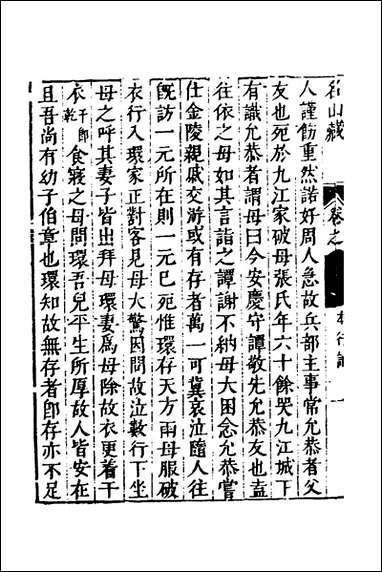 名山藏 卷之 本行記 一
人謹飭重然諾好周人急故兵部主事常允恭者父
友也死於九江家破母張氏年六十餘哭九江城下
有識允恭者謂母曰今安慶守譚敬先允恭友也盍
往依之母如其言詣之譚謝不納母大困念允恭嘗
仕金陵親戚交游或有存者萬一可冀哀泣隨人往
旣訪一元所在則一元巳死惟環存天方雨母服破
衣行入環家正對客見母大驚因問故泣數行下坐
母之呼其妻子皆出拜母環妻爲母除故衣更着干
衣干即乾食寢之母問環吾兒平生所厚故人皆安在
且吾尚有幼子伯章也環知故無存者卽存亦不足